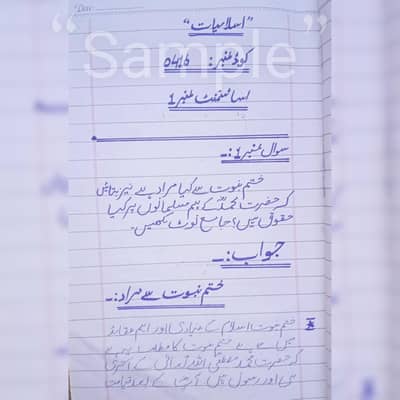 Date:
"Sample"
"اسلامیات"
کوڈ نمبر: 0416
اسائنمنٹ نمبر 1
سوال نمبر 1:۔
ختم نبوت سے کیا مراد ہے نیز بتائیں
کہ حضرت محمدؐ کے ہم مسلمانوں پر کیا
حقوق ہیں؟ جامع نوٹ لکھیں۔
جواب:۔
ختم نبوت سے مراد:۔
ختم نبوت اسلام کے بنیادی اور اہم عقائد
میں سے ہے ختم نبوت کا مطلب یہ ہے
کہ حضرت محمد مصطفیٰ اللہ تعالیٰ کے آخری
نبی اور رسول ہیں۔ آپ کے بعد قیامت